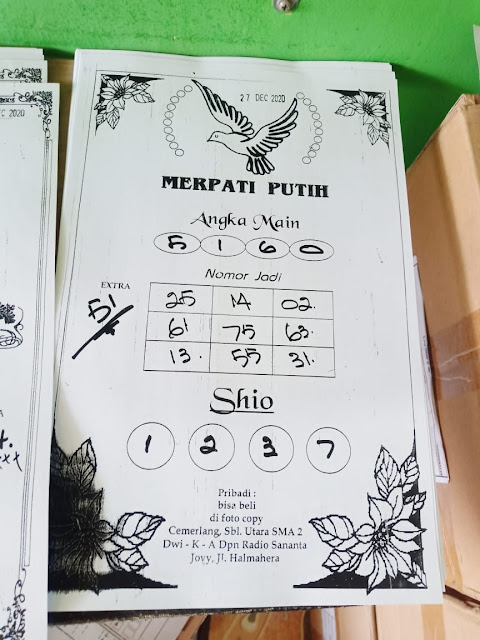 27 DEC 2020
MERPATI PUTIH
Angka Main
5 1 6 0
Nomor Jadi
EXTRA
51
25 14 02.
61 75 63.
13. 55 31.
Shio
1 2 3 7
Pribadi :
bisa beli
di foto copy
Cemerlang, Sbl. Utara SMA 2
Dwi - K - A Dpn Radio Sananta
Jovy, Jl. Halmahera
C 2020